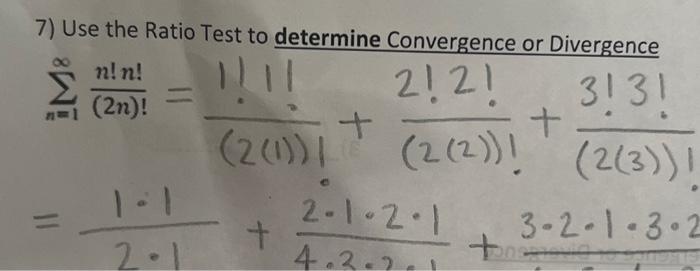 7) Use the Ratio Test to determine Convergence or Divergence
∞ Σ n=1 n! n! / (2n)! = 1! 1! / (2(1))! + 2! 2! / (2(2))! + 3! 3! / (2(3))!
= 1·1 / 2·1 + 2·1·2·1 / 4·3·2·1 + 3·2·1·3·2